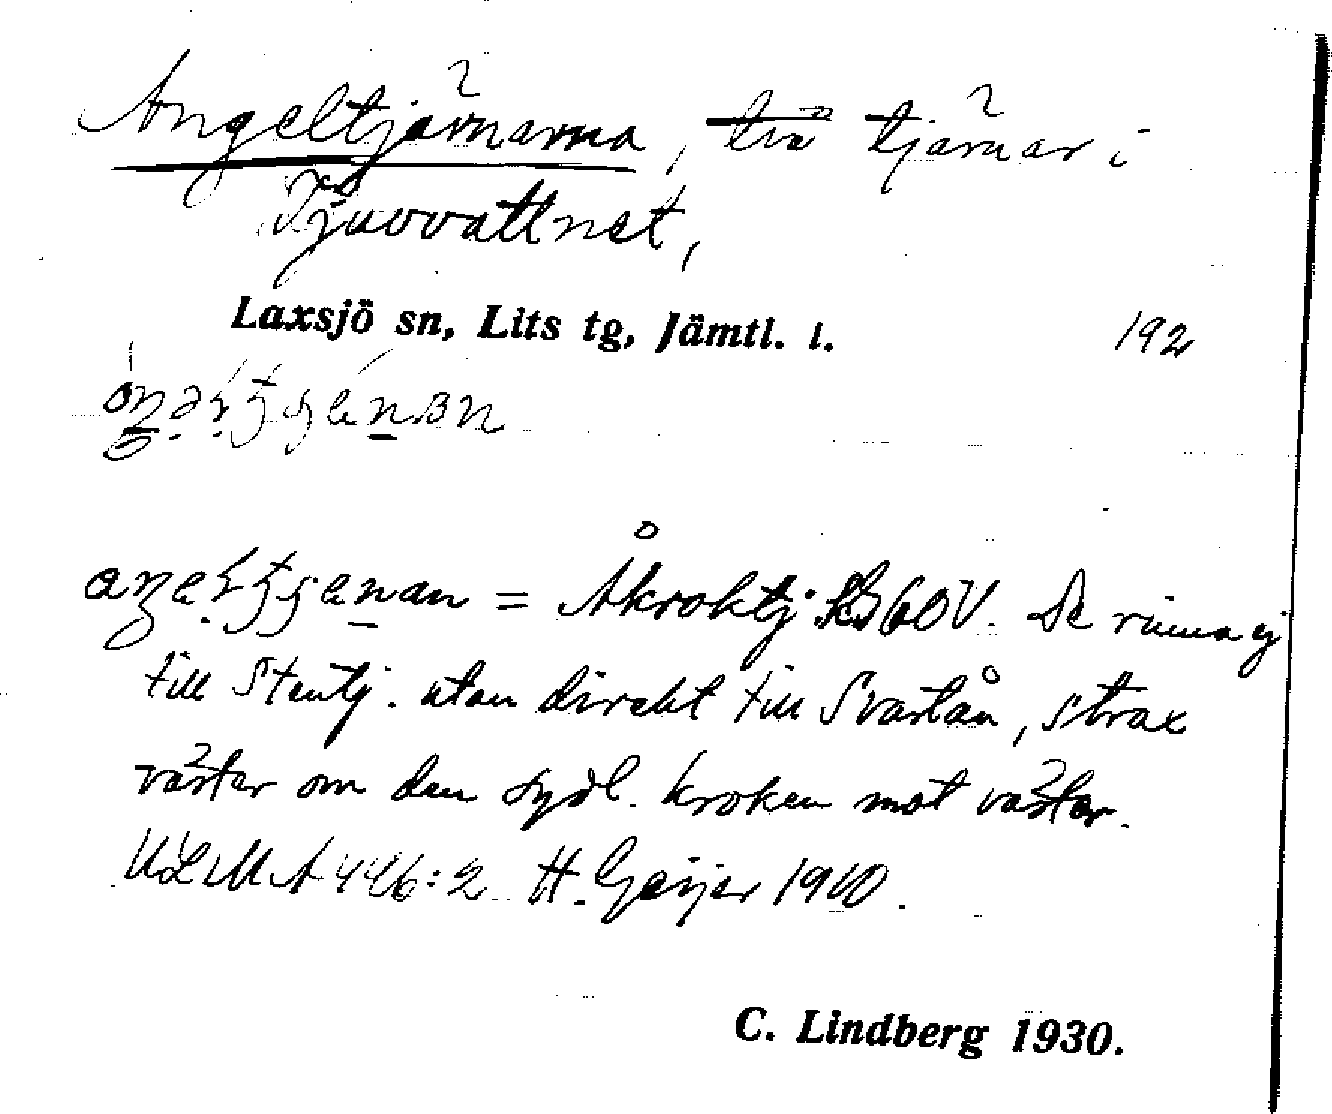 Angeltjärnarna, två tjärnar i
Tjuvvattnet,
Laxsjö sn, Lits tg, Jämtl. l.
192
= Åkroktj. 60V. De rinna ej
till Stentj. utan direkt till Svartån, strax
väster om den sydl. kroken mot väster.
ULMA 446:2 H. Geijer 1910.
C. Lindberg 1930.